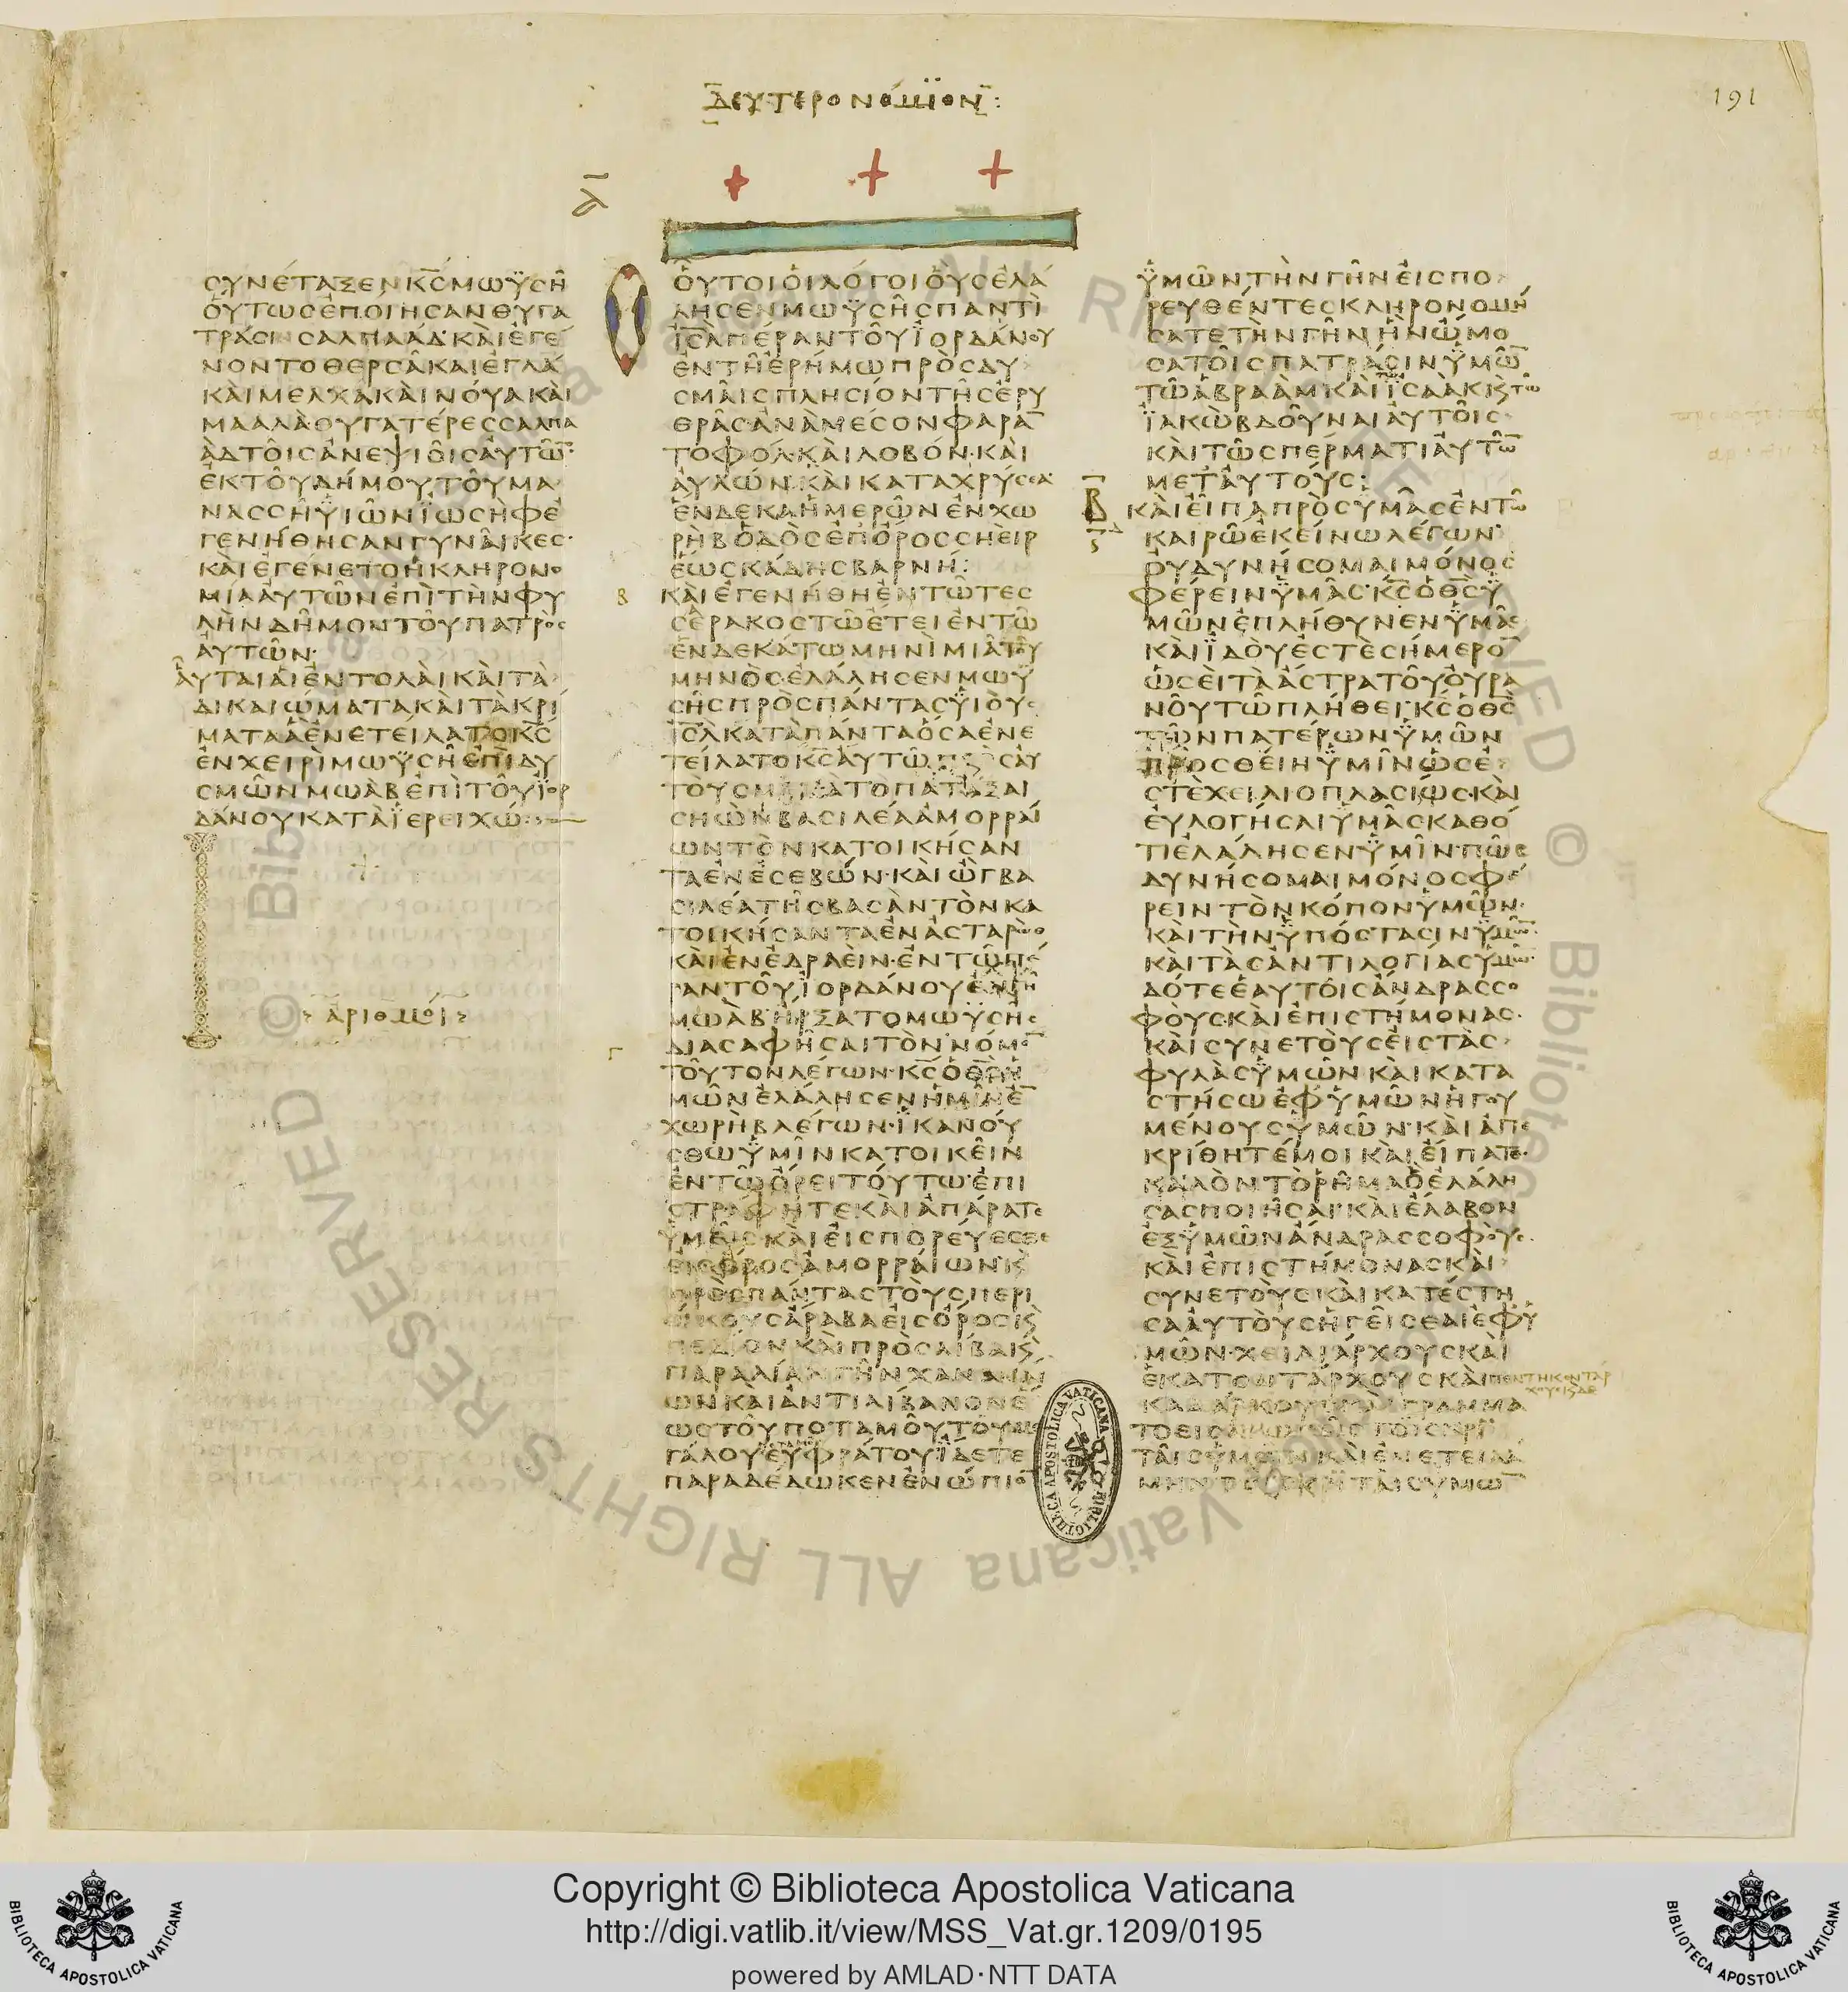 ΔΕΥΤΕΡΟΝΟΜΙΟΝ:
191
Δ
ϹΥΝΕΤΑΞΕΝΚ̅Ϲ̅ΜΩΥϹΗ
ΟΥΤΩϹΕΠΟΙΗϹΑΝΘΥΓΑ
ΤΡΑϹΙΝϹΑΛΠΑΑΔ·ΚΑΙΕΓΕ
ΝΟΝΤΟΘΕΡϹΑΚΑΙΕΓΛΑ
ΚΑΙΜΕΛΧΑΚΑΙΝΟΥΑΚΑΙ
ΜΑΑΛΑΘΥΓΑΤΕΡΕϹϹΑΛΠΑ
ΑΔΤΟΙϹΑΝΕΨΙΟΙϹΑΥΤΩ̅·
ΕΚΤΟΥΔΗΜΟΥΤΟΥΜΑ
ΝΑϹϹΗΥΙΩΝΙΩϹΗΦΕ
ΓΕΝΗΘΗϹΑΝΓΥΝΑΙΚΕϹ·
ΚΑΙΕΓΕΝΕΤΟΗΚΛΗΡΟΝΟ
ΜΙΑΑΥΤΩΝΕΠΙΤΗΝΦΥ
ΛΗΝΔΗΜΟΝΤΟΥΠΑΤΡΟϹ
ΑΥΤΩΝ·
ΑΥΤΑΙΑΙΕΝΤΟΛΑΙΚΑΙΤΑ
ΔΙΚΑΙΩΜΑΤΑΚΑΙΤΑΚΡΙ
ΜΑΤΑΑΕΝΕΤΕΙΛΑΤΟΚ̅Ϲ̅
ΕΝΧΕΙΡΙΜΩΥϹΗΕΠΙΔΥ
ϹΜΩΝΜΩΑΒΕΠΙΤΟΥΙΟΡ
ΔΑΝΟΥΚΑΤΑΙΕΡΕΙΧΩ:
ΑΡΙΘΜΟΙ
ΟΥΤΟΙΟΙΛΟΓΟΙΟΥϹΕΛΑ
ΛΗϹΕΝΜΩΥϹΗϹΠΑΝΤΙ
Ι̅Ϲ̅Λ̅ΠΕΡΑΝΤΟΥΙΟΡΔΑΝΟΥ
ΕΝΤΗΕΡΗΜΩΠΡΟϹΔΥ
ϹΜΑΙϹΠΛΗϹΙΟΝΤΗϹΕΡΥ
ΘΡΑϹ·ΑΝΑΜΕϹΟΝΦΑΡΑ̅
ΤΟΦΟΛ·ΚΑΙΛΟΒΟΝ·ΚΑΙ
ΑΥΛΩΝ·ΚΑΙΚΑΤΑΧΡΥϹΕΑ·
ΕΝΔΕΚΑΗΜΕΡΩΝΕΝΧΩ
ΡΗΒΟΔΟϹΕΠΟΡΟϹϹΗΕΙΡ
ΕΩϹΚΑΔΗϹΒΑΡΝΗ:
Β
ΚΑΙΕΓΕΝΗΘΗΕΝΤΩΤΕϹ
ϹΕΡΑΚΟϹΤΩΕΤΕΙΕΝΤΩ
ΕΝΔΕΚΑΤΩΜΗΝΙΜΙΑΤΟΥ
ΜΗΝΟϹΕΛΑΛΗϹΕΝΜΩΥ
ϹΗϹΠΡΟϹΠΑΝΤΑϹΥΙΟΥϹ
Ι̅Ϲ̅Λ̅ΚΑΤΑΠΑΝΤΑΟϹΑΕΝΕ
ΤΕΙΛΑΤΟΚ̅Ϲ̅ΑΥΤΩΠΡΟϹΑΥ
ΤΟΥϹΜΕΤΑΤΟΠΑΤΑΞΑΙ
ϹΗΩΝΒΑϹΙΛΕΑΑΜΟΡΡΑΙ
ΩΝΤΟΝΚΑΤΟΙΚΗϹΑΝ
ΤΑΕΝΕϹΕΒΩΝ·ΚΑΙΩΓΒΑ
ϹΙΛΕΑΤΗϹΒΑϹΑΝΤΟΝΚΑ
ΤΟΙΚΗϹΑΝΤΑΕΝΑϹΤΑΡΩΘ
ΚΑΙΕΝΕΔΡΑΕΙΝ·ΕΝΤΩΠΕ
ΡΑΝΤΟΥΙΟΡΔΑΝΟΥΕΝΓΗ
ΜΩΑΒ·ΗΡΞΑΤΟΜΩΥϹΗϹ
Γ
ΔΙΑϹΑΦΗϹΑΙΤΟΝΝΟΜΟ̅
ΤΟΥΤΟΝΛΕΓΩΝ·Κ̅Ϲ̅ΟΘ̅Ϲ̅Η
ΜΩΝΕΛΑΛΗϹΕΝΗΜΙΝΕ̅
ΧΩΡΗΒΛΕΓΩΝ·ΙΚΑΝΟΥ
ϹΘΩΥΜΙΝΚΑΤΟΙΚΕΙΝ
ΕΝΤΩΟΡΕΙΤΟΥΤΩ·ΕΠΙ
ϹΤΡΑΦΗΤΕΚΑΙΑΠΑΡΑΤΕ
ΥΜΕΙϹ·ΚΑΙΕΙϹΠΟΡΕΥΕϹΘΕ
ΕΙϹΟΡΟϹΑΜΟΡΡΑΙΩΝΚ
ΠΡΟϹΠΑΝΤΑϹΤΟΥϹΠΕΡΙ
ΟΙΚΟΥϹΑΡΑΒΑΕΙϹΟΡΟϹΚ
ΠΕΔΙΟΝΚΑΙΠΡΟϹΛΙΒΑΚ
ΠΑΡΑΛΙΑΝΓΗΝΧΑΝΑΝΑΙ
ΩΝΚΑΙΑΝΤΙΛΙΒΑΝΟΝΕ
ΩϹΤΟΥΠΟΤΑΜΟΥΤΟΥΜΕ
ΓΑΛΟΥΕΥΦΡΑΤΟΥΙΔΕΤΕ
ΠΑΡΑΔΕΔΩΚΕΝΕΝΩΠΙΟ̅
ΥΜΩΝΤΗΝΓΗΝΕΙϹΠΟ
ΡΕΥΘΕΝΤΕϹΚΛΗΡΟΝΟΜΗ
ϹΑΤΕΤΗΝΓΗΝΗΝΩΜΟ
ϹΑΤΟΙϹΠΑΤΡΑϹΙΝΥΜΩ̅
ΤΩΑΒΡΑΑΜΚΑΙΙϹΑΑΚΚΤΩ
ΙΑΚΩΒΔΟΥΝΑΙΑΥΤΟΙϹ
ΚΑΙΤΩϹΠΕΡΜΑΤΙΑΥΤΩ̅
ΜΕΤΑΥΤΟΥϹ:
Β
ΚΑΙΕΙΠΑΠΡΟϹΥΜΑϹΕΝΤΩ
ΚΑΙΡΩΕΚΕΙΝΩΛΕΓΩΝ
ΟΥΔΥΝΗϹΟΜΑΙΜΟΝΟϹ
ΦΕΡΕΙΝΥΜΑϹ·Κ̅Ϲ̅ΟΘ̅Ϲ̅Υ
ΜΩΝΕΠΛΗΘΥΝΕΝΥΜΑϹ
ΚΑΙΙΔΟΥΕϹΤΕϹΗΜΕΡΟ̅
ΩϹΕΙΤΑΑϹΤΡΑΤΟΥΟΥΡΑ
ΝΟΥΤΩΠΛΗΘΕΙ·Κ̅Ϲ̅ΟΘ̅Ϲ̅
ΤΩΝΠΑΤΕΡΩΝΥΜΩΝ
ΠΡΟϹΘΕΙΗΥΜΙΝΩϹΕ
ϹΤΕΧΕΙΛΙΟΠΛΑϹΙΩϹ·ΚΑΙ
ΕΥΛΟΓΗϹΑΙΥΜΑϹΚΑΘΟ
ΤΙΕΛΑΛΗϹΕΝΥΜΙΝ·ΠΩϹ
ΔΥΝΗϹΟΜΑΙΜΟΝΟϹΦΕ
ΡΕΙΝΤΟΝΚΟΠΟΝΥΜΩΝ·
ΚΑΙΤΗΝΥΠΟϹΤΑϹΙΝΥΜΩ̅
ΚΑΙΤΑϹΑΝΤΙΛΟΓΙΑϹΥΜΩ̅·
ΔΟΤΕΕΑΥΤΟΙϹΑΝΔΡΑϹϹΟ
ΦΟΥϹΚΑΙΕΠΙϹΤΗΜΟΝΑϹ·
ΚΑΙϹΥΝΕΤΟΥϹΕΙϹΤΑϹ
ΦΥΛΑϹΥΜΩΝΚΑΙΚΑΤΑ
ϹΤΗϹΩΕΦΥΜΩΝΗΓΟΥ
ΜΕΝΟΥϹΥΜΩΝ·ΚΑΙΑΠΕ
ΚΡΙΘΗΤΕΜΟΙΚΑΙΕΙΠΑΤΕ·
ΚΑΛΟΝΤΟΡΗΜΑΟΕΛΑΛΗ
ϹΑϹΠΟΙΗϹΑΙ·ΚΑΙΕΛΑΒΟΝ
ΕΞΥΜΩΝΑΝΔΡΑϹϹΟΦΟΥϹ
ΚΑΙΕΠΙϹΤΗΜΟΝΑϹΚΑΙ
ϹΥΝΕΤΟΥϹ·ΚΑΙΚΑΤΕϹΤΗ
ϹΑΑΥΤΟΥϹΗΓΕΙϹΘΑΙΕΦΥ
ΜΩΝ·ΧΕΙΛΙΑΡΧΟΥϹΚΑΙ
ΕΚΑΤΟΝΤΑΡΧΟΥϹΚΑΙΠΕΝΤΗΚΟΝΤΑΡ
ΧΟΥϹΚΔΕ
ΚΑΔΑΡΧΟΥϹΚΑΙΓΡΑΜΜΑ
ΤΟΕΙϹΑΓΩΓΕΙϹΤΟΙϹΚΡΙ
ΤΑΙϹΥΜΩΝΚΑΙΕΝΕΤΕΙΛΑ
ΜΗΝΤΟΙϹΚΡΙΤΑΙϹΥΜΩ̅
BIBLIOTHECA APOSTOLICA VATICANA
Copyright © Biblioteca Apostolica Vaticana
http://digi.vatlib.it/view/MSS_Vat.gr.1209/0195
powered by AMLAD·NTT DATA
BIBLIOTECA APOSTOLICA VATICANA
BIBLIOTECA APOSTOLICA VATICANA